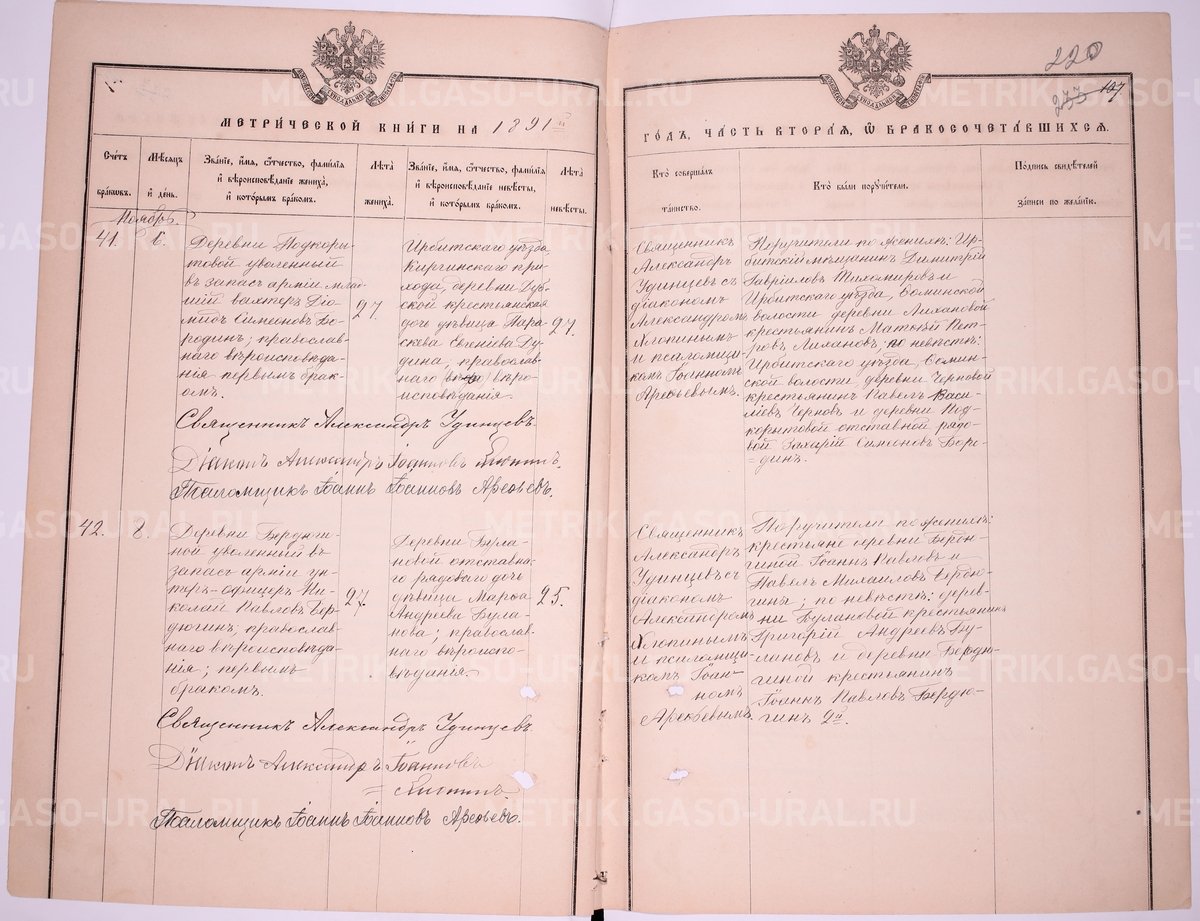 220
233 107
МЕТРИ́ЧЕСКОЙ КНИ́ГИ НА 1891й
ГО́ДЪ, ЧАСТЬ ВТОРАЯ, Ѡ БРАКОСОЧЕТА́ВШИХСЯ.
Сче́тъ браковъ.
Мѣ́сяцъ и де́нь.
Зва́нїе, и́мя, ѻ́тчество, фамі́лїя
и вѣроисповѣ́данїе жениха̀,
и кото́рымъ бракомъ.
Лѣ́та жениха̀.
Зва́нїе, и́мя, ѻ́тчество, фамі́лїя
и вѣроисповѣ́данїе невѣ́сты,
и кото́рымъ бракомъ.
Лѣ́та невѣ́сты.
Кто̀ соверша́лъ таинство.
Кто̀ бы́ли пору́чители.
По́дпись свидѣ́телей за́писи по жела́нїю.
Ноябрь.
41. 6.
Деревни Подкоры-
товой уволенный
въ запасъ армiи млад-
шiй вахтеръ Дiо-
мидъ Симеоновъ Бо-
родинъ; православ-
наго вѣроисповѣда-
нiя первымъ брак-
омъ.
27.
Ирбитскаго уѣзда,
Киргинскаго при-
хода, деревни Дуб-
ской крестьянская
дочь дѣвица Пара-
скева Евгенiева Ду-
дина; православ-
наго вѣро-
исповѣданiя.
27.
Священникъ
Александръ
Удинцевъ съ
дiакономъ
Александромъ
Хлопинымъ
и псаломщи-
комъ Iоанномъ
Арефьевымъ.
Поручители по женихѣ: Ир-
битскiй мѣщанинъ Димитрiй
Гаврiиловъ Тихомировъ и
Ирбитскаго уѣзда, Соминской
волости деревни Лихановой
крестьянинъ Матѳiй Пет-
ровъ Лихановъ; по невѣстѣ:
Ирбитскаго уѣзда, Сомин-
ской волости, деревни Черновой
крестьянинъ Павелъ Васи-
лiевъ Черновъ и деревни Под-
корытовой отставной рядо-
вой Захарiй Симеоновъ Боро-
=динъ.
Священникъ Александръ Удинцевъ.
Дiаконъ Александръ Iоанновъ Хлопинъ.
Псаломщикъ Iоаннъ Iоанновъ Арефьевъ.
42. 8.
Деревни Бердюги-
ной уволенный въ
запасъ армiи ун-
теръ-офицеръ Ни-
колай Павловъ Бер-
дюгинъ; православ-
наго вѣроисповѣда-
нiя; первымъ
бракомъ.
27.
Деревни Була-
новой отставна-
го рядоваго дочь
дѣвица Марѳа
Андреева Була-
нова; православ-
наго вѣроиспо-
вѣданiя.
25.
Священникъ
Александръ
Удинцевъ съ
дiакономъ
Александромъ
Хлопинымъ
и псаломщи-
комъ Iоан-
номъ
Арефьевымъ.
Поручители по женихѣ:
крестьяне деревни Бердю-
гиной Iоаннъ Павловъ и
Павелъ Михаиловъ Бердю-
гины; по невѣстѣ: дерев-
ни Булановой крестьянинъ
Григорiй Андреевъ Бу-
лановъ и деревни Бердю-
гиной крестьянинъ
Iоаннъ Павловъ Бердю-
гинъ 2й.
Священникъ Александръ Удинцевъ.
Дiаконъ Александръ Iоанновъ
=Хлопинъ.
Псаломщикъ Iоаннъ Iоанновъ Арефьевъ.
METRIKI.GASO-URAL.RU